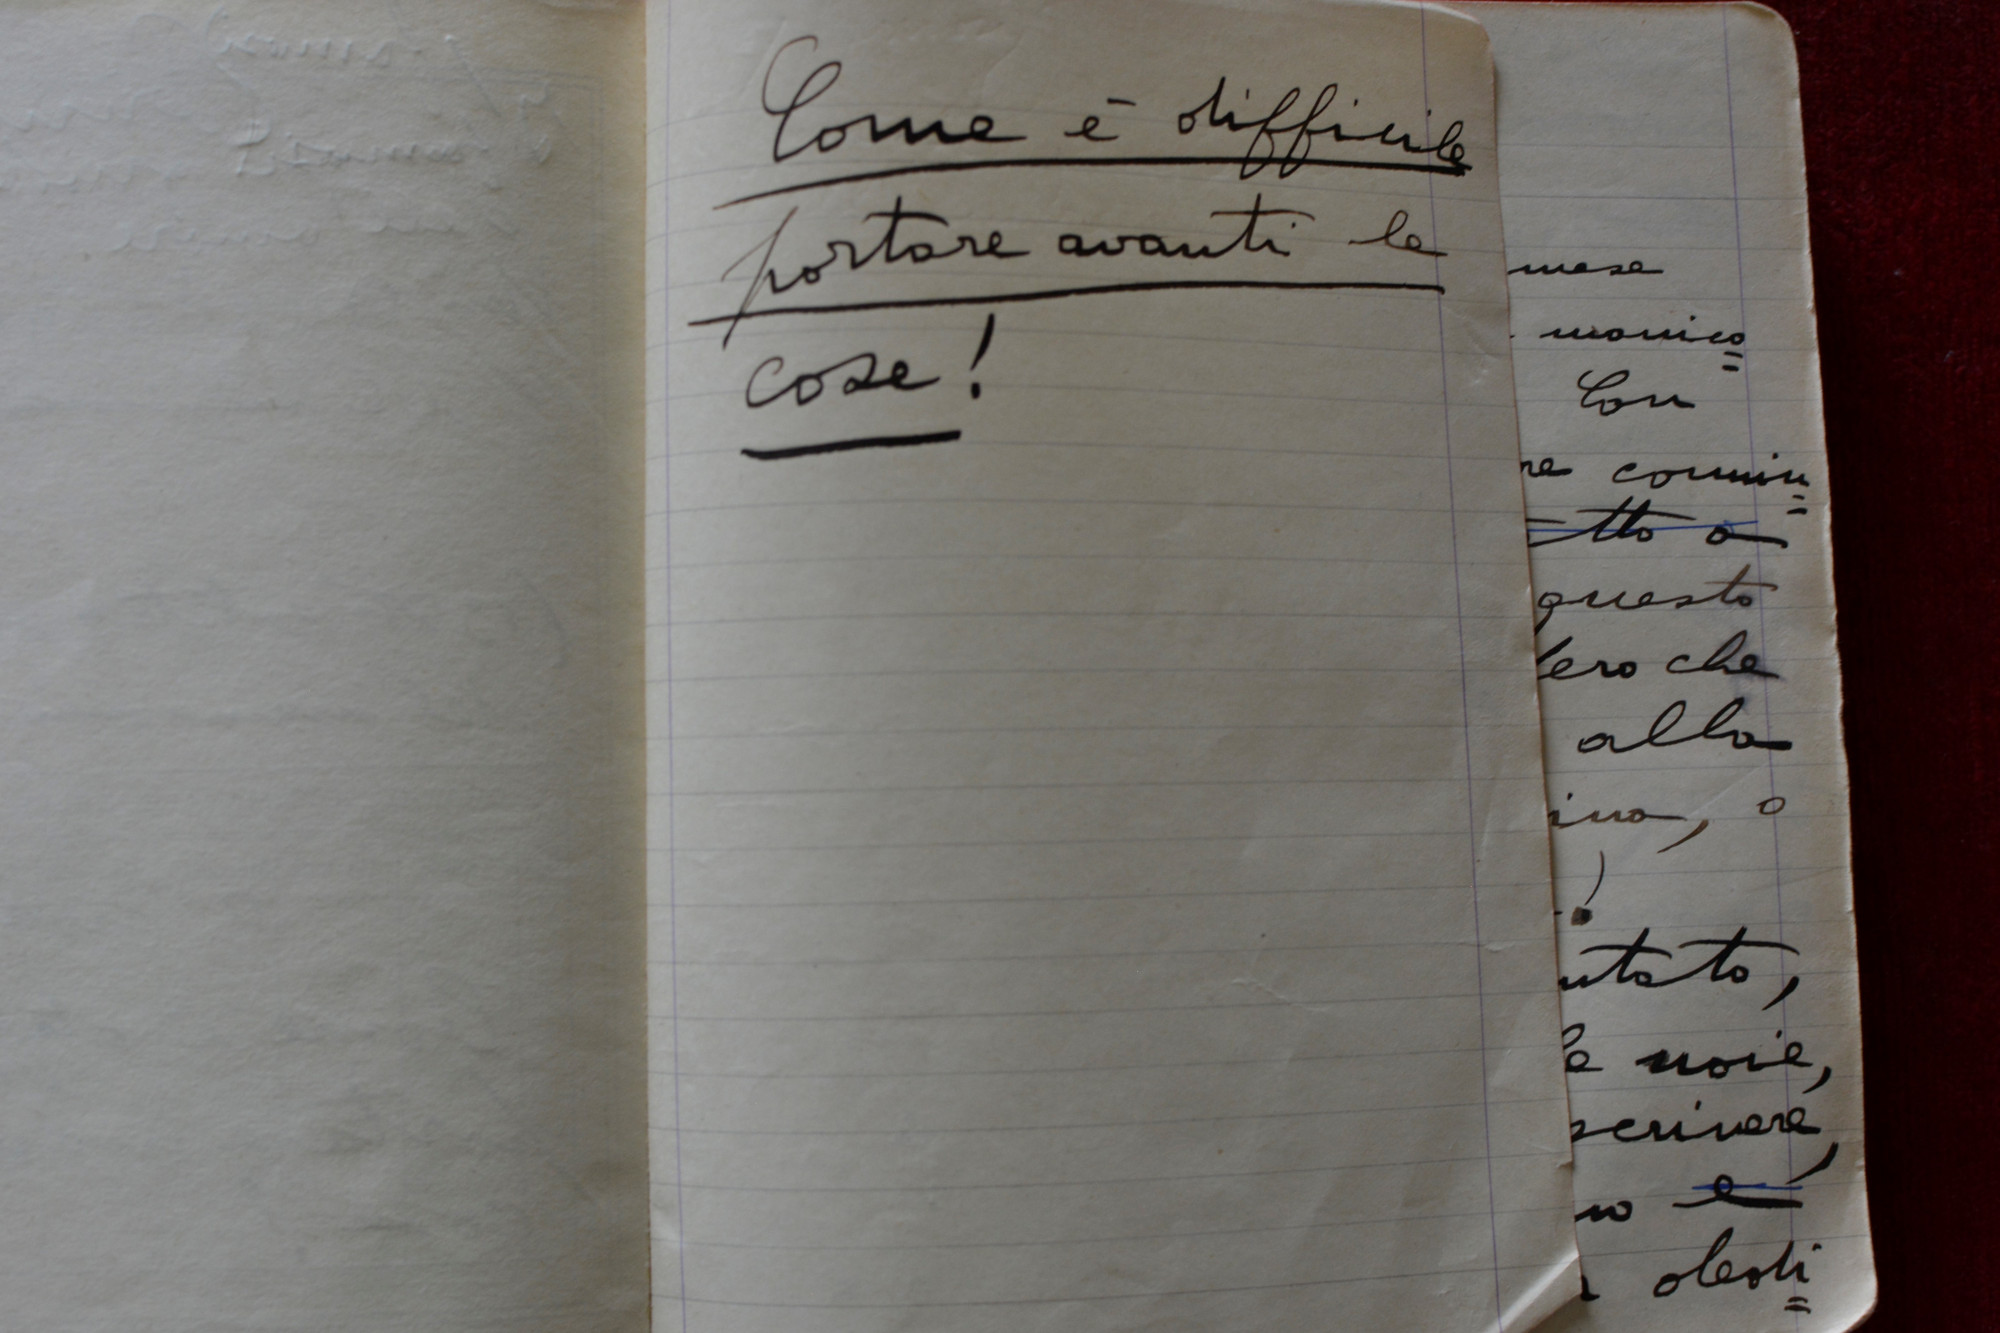 Come è difficile
portare avanti le
cose!
mese
monico
Con
re comin
etto a
questo
vero che
alla
ina, o
!
utato,
le noie,
scrivere,
no e
dedi